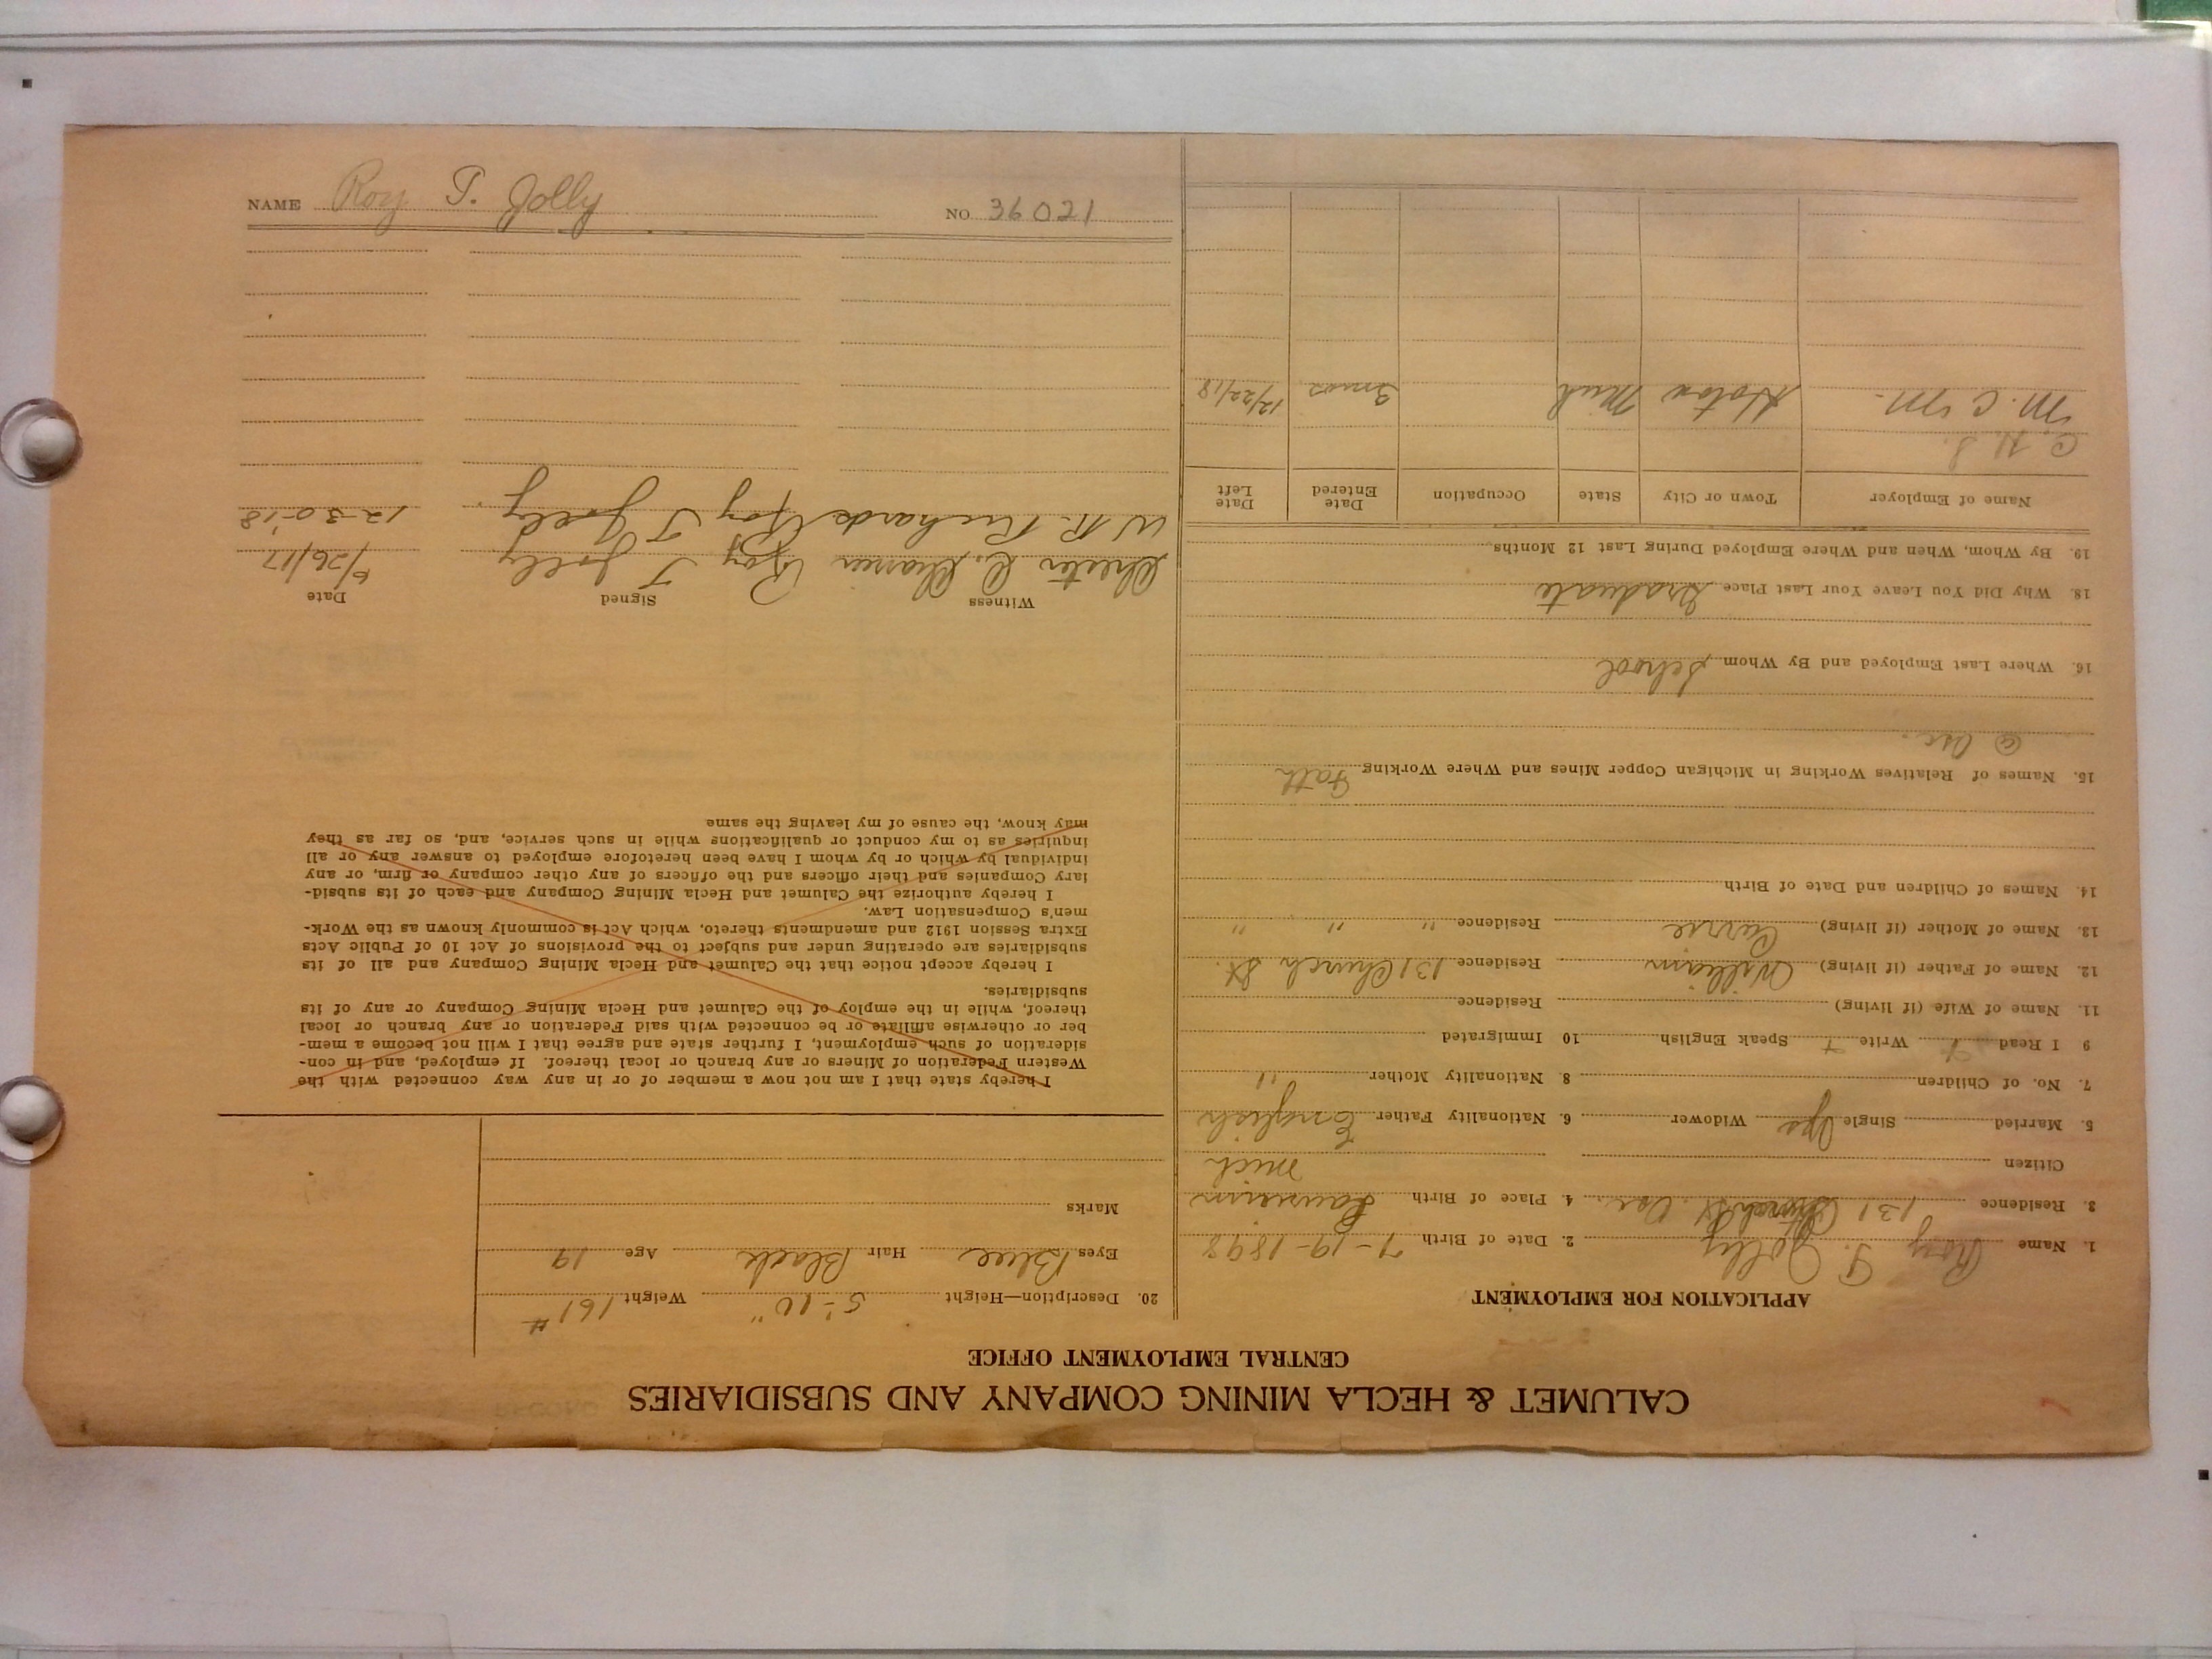 CALUMET & HECLA MINING COMPANY AND SUBSIDIARIES
CENTRAL EMPLOYMENT OFFICE
APPLICATION FOR EMPLOYMENT
1. Name Roy T. Jolly 2. Date of Birth 7-19-1898
3. Residence 131 Church St. Osc. 4. Place of Birth Laurium
Citizen Mich
5. Married Single Yes Widower 6. Nationality Father English
7. No. of Children 8. Nationality Mother "
9 I Read Write Speak English 10 Immigrated
11. Name of Wife (if living) Residence
12. Name of Father (if living) William Residence 131 Church St.
13. Name of Mother (if living) Carrie Residence " " "
14. Names of Children and Date of Birth
15. Names of Relatives Working in Michigan Copper Mines and Where Working Fath
@ Osc.
16. Where Last Employed and By Whom School
18. Why Did You Leave Your Last Place Graduate
19. By Whom, When and Where Employed During Last 12 Months
Name of Employer Town or City State Occupation Date Entered Date Left
C. H. S.
M. C. M. Hoton Mich 3 mos 12/22/18
20. Description—Height 5'-10" Weight 161#
Eyes Blue Hair Black Age 19
Marks
I hereby state that I am not now a member of or in any way connected with the
Western Federation of Miners or any branch or local thereof. If employed, and in con-
sideration of such employment, I further state and agree that I will not become a mem-
ber or otherwise affiliate or be connected with said Federation or any branch or local
thereof, while in the employ of the Calumet and Hecla Mining Company or any of its
subsidiaries.
I hereby accept notice that the Calumet and Hecla Mining Company and all of its
subsidiaries are operating under and subject to the provisions of Act 10 of Public Acts
Extra Session 1912 and amendments thereto, which Act is commonly known as the Work-
men's Compensation Law.
I hereby authorize the Calumet and Hecla Mining Company and each of its subsid-
iary Companies and their officers and the officers of any other company or firm, or any
individual by which or by whom I have been heretofore employed to answer any or all
inquiries as to my conduct or qualifications while in such service, and, so far as they
may know, the cause of my leaving the same
Witness Signed Date
Chester C. Roy T Jolly 6/26/17
W. R. Richards Roy T Jolly. 12-30-18
NAME Roy T. Jolly NO 36021